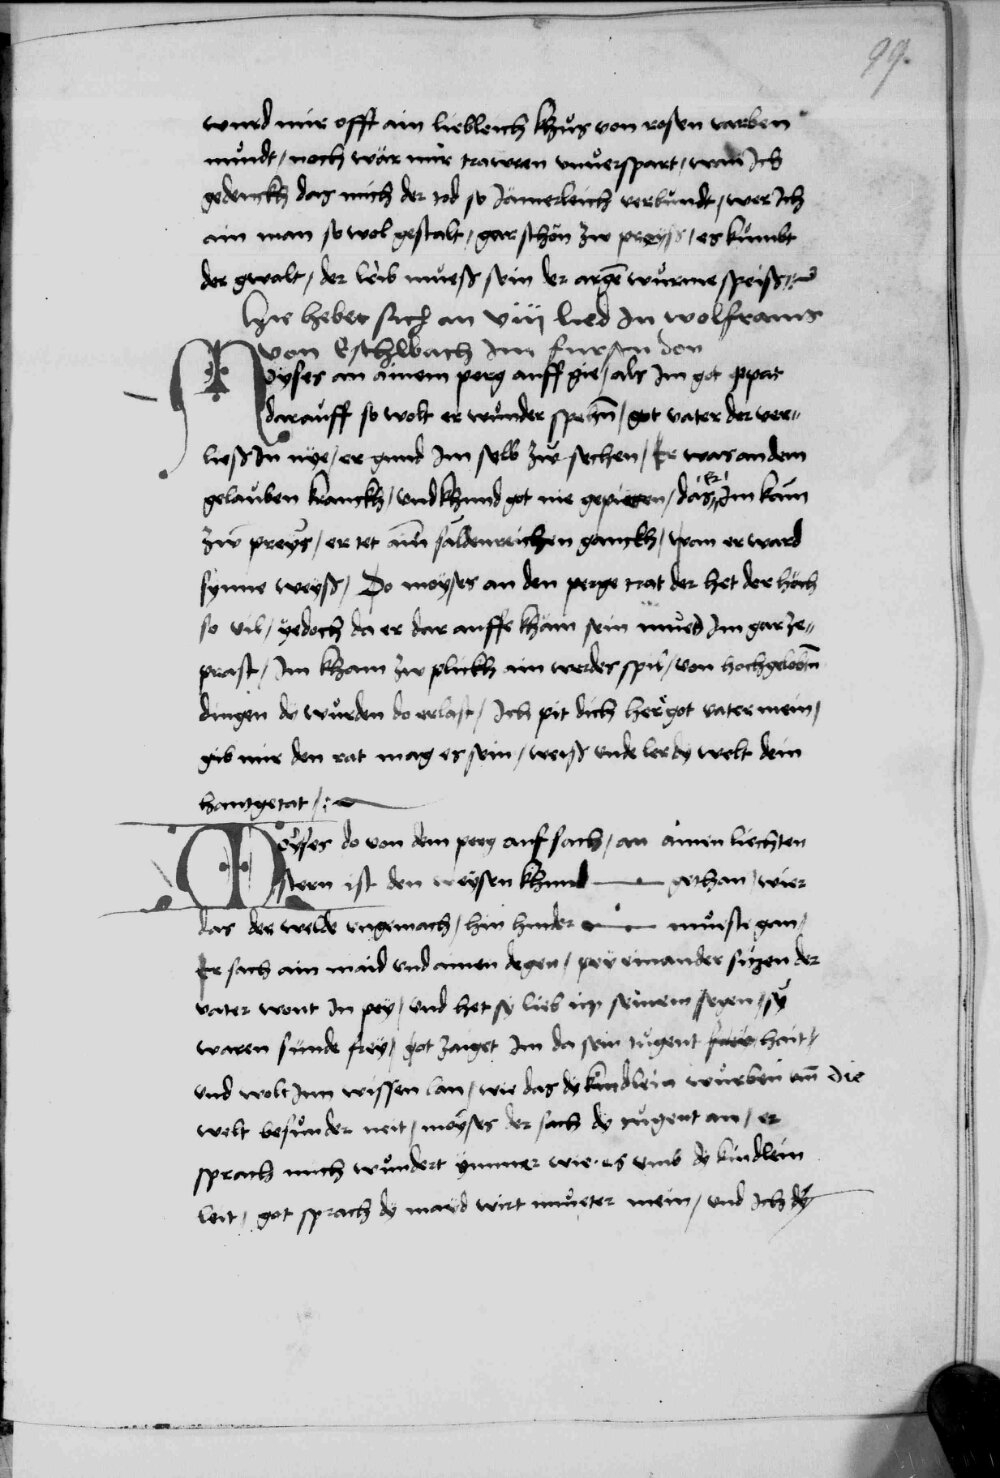 99.
wurd mir offt ain liebleich khus von rosen varben
mundt / noch wär mir trawren unverspart / wan Ich
gedenckh das mich der tod so Jämerleich verkundt / wer Ich
ain man so wol gestalt / gar schön zw preyss / es kumbt
der gwalt / der leib muess sein der argē würme speiss /
Hye hebet sich an viij lied In wolframs
von Eschlbach Im fursen don
Moyses an ainem perg auff gie / als Im got
darauff so wolt er wunder spehn̄ / got vater der ver„
liess In nye / er gund Im selb zw sechen / Er was an dem
gelauben kranckh / und khund got nie / das er Im kam
zw preys / er tet ain̄ säldenreichen ganckh / wan er ward
synne weyss / Do moyses an den perge trat der het der höch
so vil / yedoch da er dar auffe kham sein mued Im gar ze„
prast / Im kham zw plickh ain werdes spil / von hochgelobn̄
dingen dy wurden do erlast / Ich pit dich hergot vater mein /
gib mir den rat mag es sein / weiss unde ler dy welt dein
hantgetat /
Moyses do von dem perg auf sach / an ainen liechten
stern ist den weysen khund gethan / wier
das der welde ungemach / hin hinder mueste gan /
Er sach ain maid und ainen degen / pey einander sitzen der
vater wont In pey / und het sy lieb in seinem segen / sy
waren sünde frey / got zaiget Im da sein tugent hait /
und wolt Inn wissen lan / wie das dy kindlein wurben um̄ Die
welt besunder neit / moyses der sach dy tugent an / er
sprach mich wundert ymmer wie es umb dy kindlein
leit / got sprach dy maid wirt mueter mein / und Ich dy